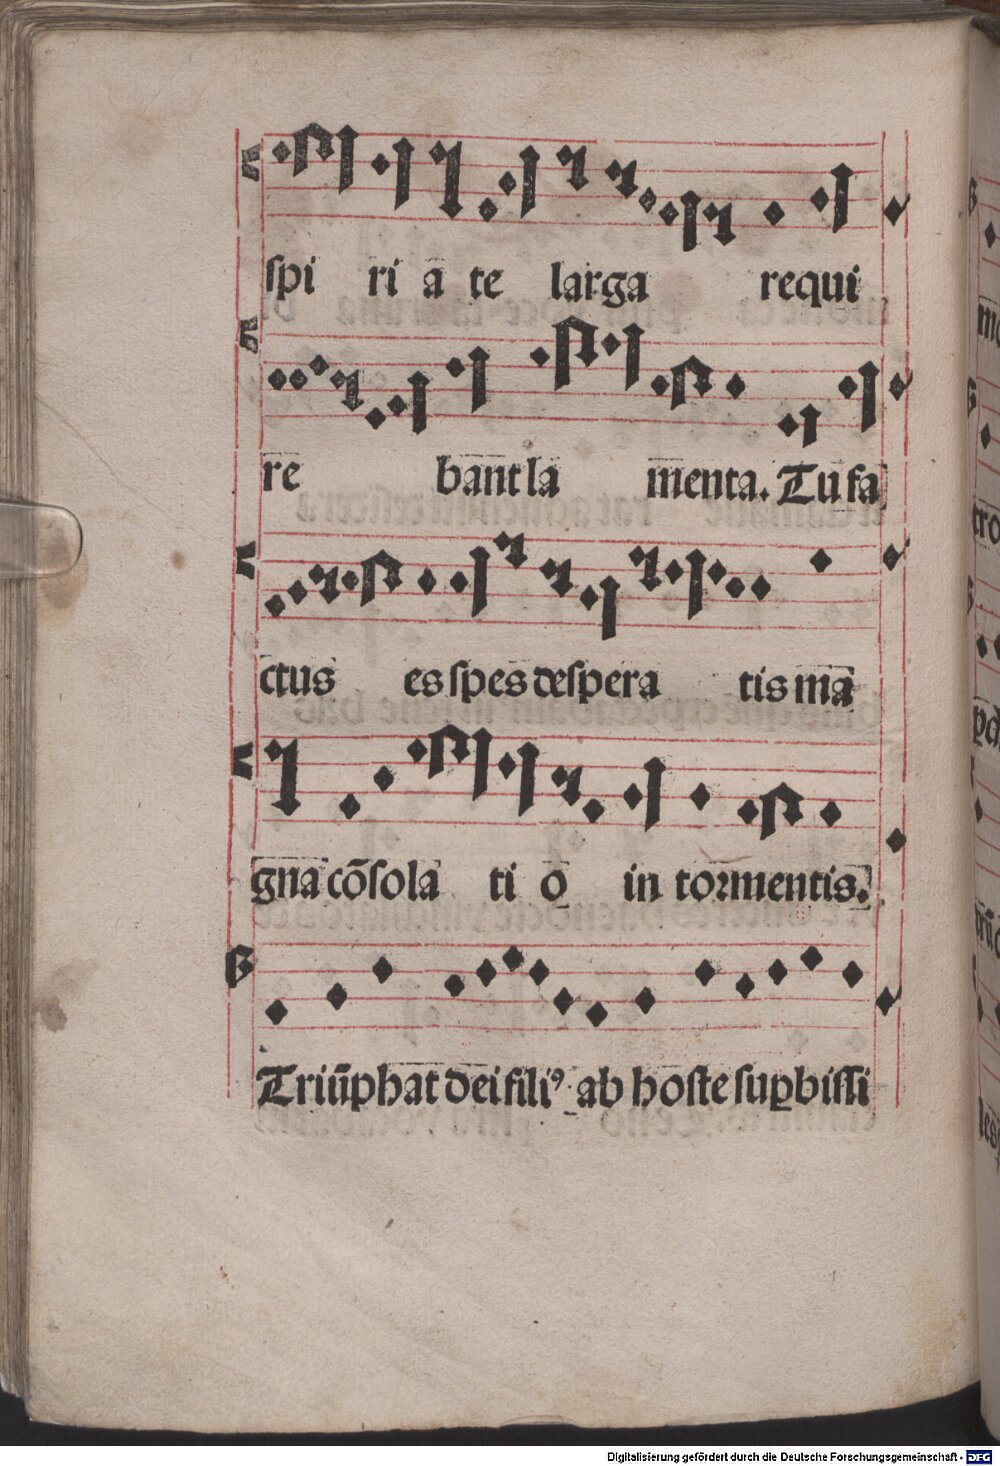 spi ri a te larga requi
re bant la menta. Tu fa
ctus es spes despera tis ma
gna cōsola ti o in tormentis.
Triūphat dei filiꝰ ab hoste suꝑbissi
Digitalisierung gefördert durch die Deutsche Forschungsgemeinschaft - DFG